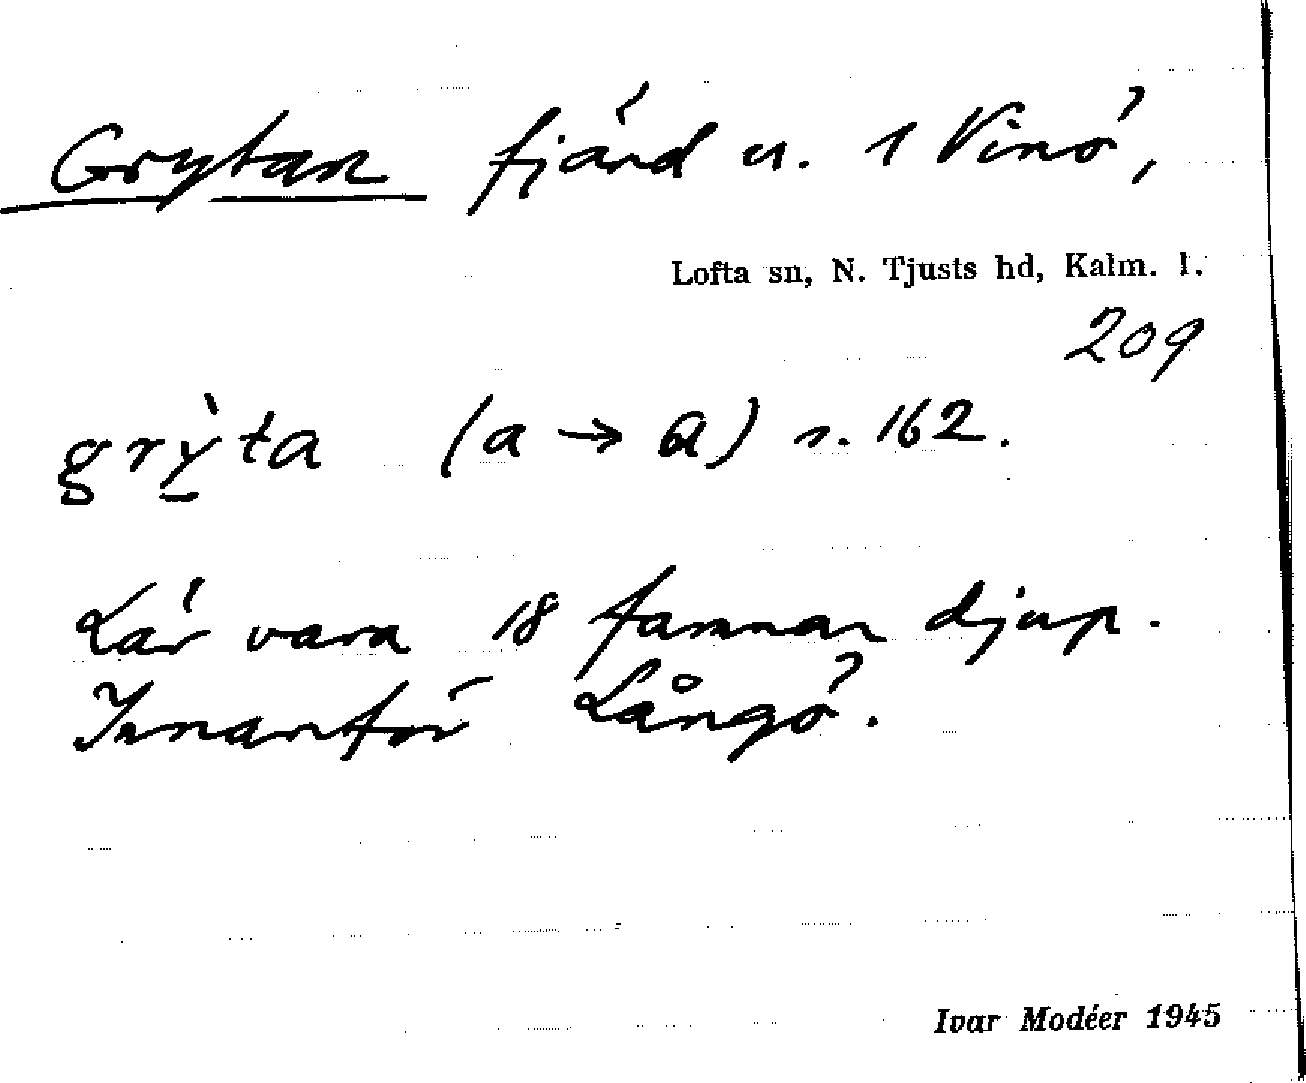 Grytan fjärd u. 1 Vinö,
Lofta sn, N. Tjusts hd, Kalm. l.
209
grỳta (a → ɑ) s. 162.
Lär vara 18 famnar djup.
Innanför Långö.
Ivar Modéer 1945